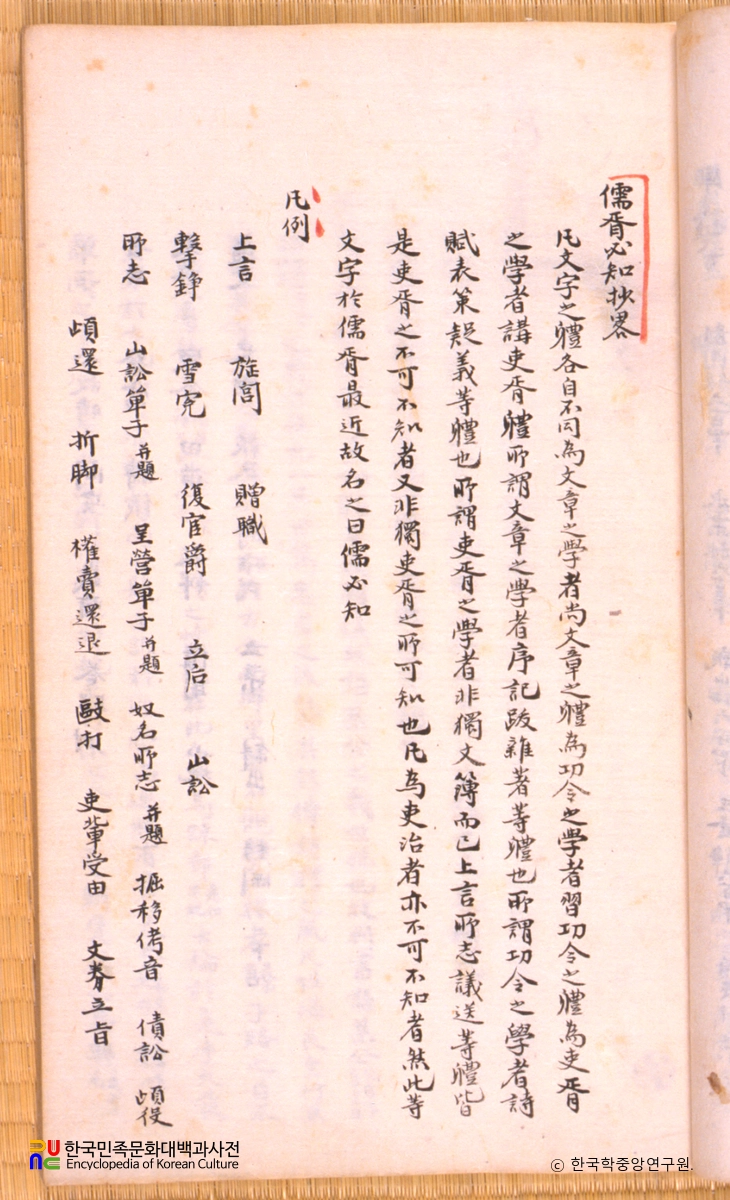 儒胥必知抄畧
凡文字之軆各自不同為文章之學者尚文章之軆為功令之學者習功令之軆為吏胥
之學者講吏胥軆所謂文章之學者序記跋雜著等軆也所謂功令之學者詩
賦表策疑義等軆也所謂吏胥之學者非獨文簿而已上言所志議送等軆皆
是吏胥之不可不知者又非獨吏胥之所可知也凡為吏治者亦不可不知者然此等
文字於儒胥最近故名之曰儒必知
凡例
上言 旌閭 贈職
擊錚 雪寃 復官爵 立后 山訟
所志 山訟單子 并題 呈營單子 并題 奴名所志 并題 掘移侤音 債訟 頉役
頉還 折脚 權賣還退 毆打 吏輩受由 文券立旨
한국민족문화대백과사전
Encyclopedia of Korean Culture
© 한국학중앙연구원.